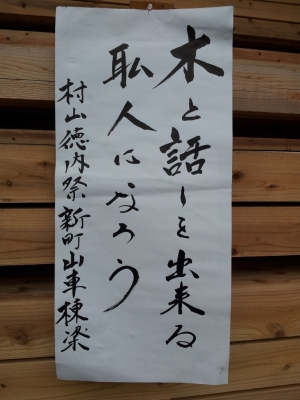 木と話しを出来る
耺人になろう
村山徳内祭新町山車棟梁